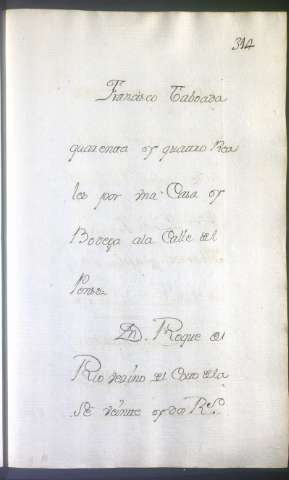 314
Francisco Taboada
quarenta y quatro Rea
les por vna Casa y
Bodega ala Calle del
Puente
Dn. Roque del
Rio vezino del Coto dela
Se veinte y dos Rs.